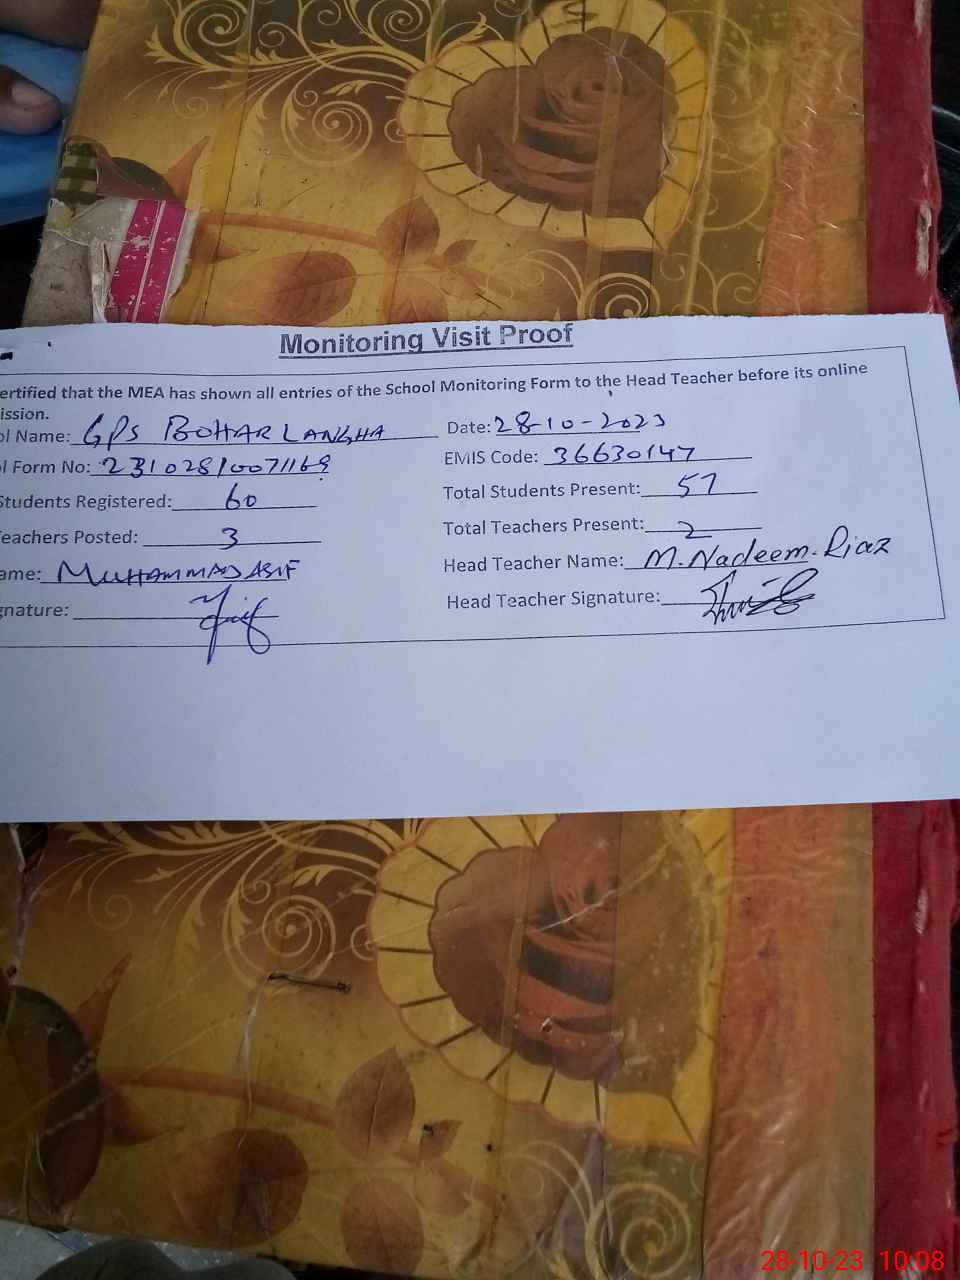 Monitoring Visit Proof
ertified that the MEA has shown all entries of the School Monitoring Form to the Head Teacher before its online
ission.
ol Name: GPS BOHAR LANGHA Date: 28-10-2023
l Form No: 23102810071169 EMIS Code: 36630147
Students Registered: 60 Total Students Present: 57
eachers Posted: 3 Total Teachers Present: 2
ame: MUHAMMAD ASIF Head Teacher Name: M. Nadeem. Riaz
gnature: Head Teacher Signature:
28-10-23 10:08